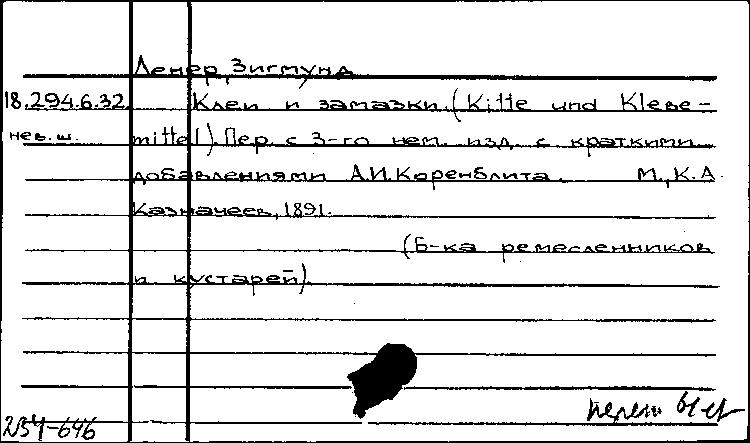 Ленер, Зигмунд
18.294.6.32. Клеи и замазки. (Kitte und Klebe-
нев. ш. mittel). Пер. с 3-го нем. изд. с краткими
добавлениями А.И.Коренблита. М., К.А.
Казначеев, 1891.
(Б-ка ремесленников
и кустарей)
234-646